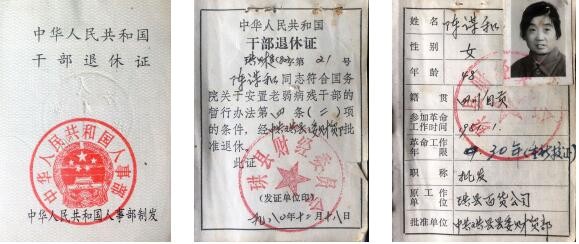 中华人民共和国
干部退休证
中华人民共和国人事部
中华人民共和国人事部制发
中华人民共和国
干部退休证
字第21号
陈谋和同志符合国务
院关于安置老弱病残干部的
暂行办法第四条(二)项
的条件,经批
准退休。
此证
珙县财经委员会
(发证单位印)
一九八〇年十二月十八日
姓名 陈谋和
性别 女
年龄 48
籍贯 四川自贡
参加革命
工作时间 1951.1.
革命工作
年限 30年
职称 批发
原工作
单位 珙县百货公司
批准单位 中共珙县县委财贸部